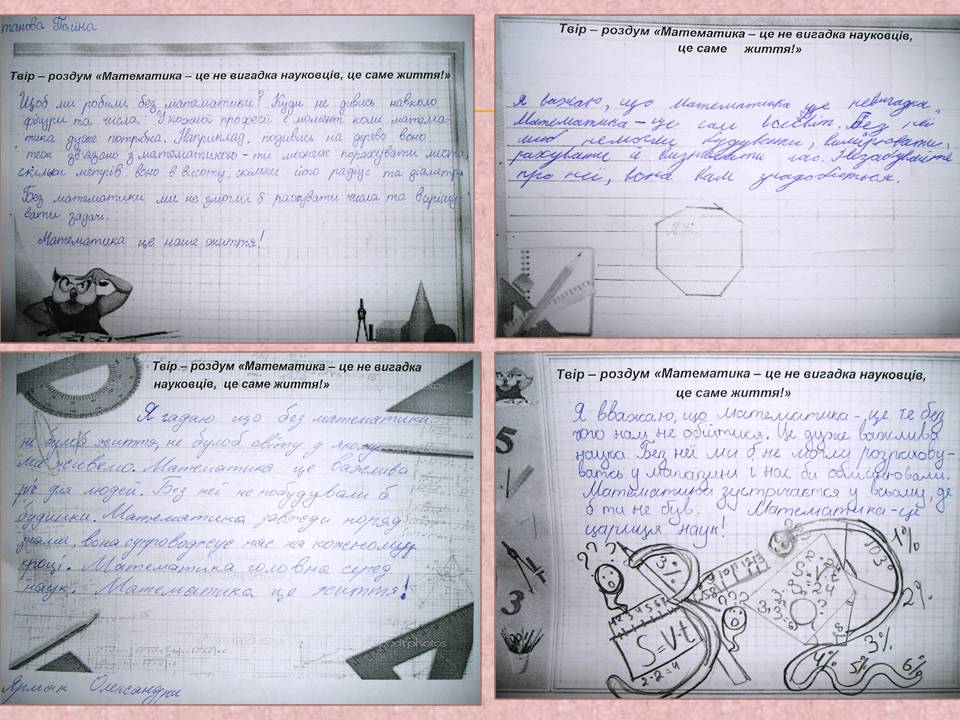 танова Поліна
Твір – роздум «Математика – це не вигадка науковців, це саме життя!»
Щоб ми робили без математики? Куди не дивись навколо
фігури та числа. У кожної професії є момент коли матема-
тика дуже потрібна. Наприклад, подивись на дерево, воно
теж зв'язано з математикою - ти можеш порахувати листя,
скільки метрів воно в висоту, скільки його радіус та діаметр.
Без математики ми не змогли б рахувати числа та вирішу-
вати задачі.
Математика це наше життя!
Твір – роздум «Математика – це не вигадка науковців,
це саме життя!»
Я важаю, що математика це невигадка.
Математика – це сам всесвіт. Без неї
люд немогли будувати, вимірювати,
рахувати й визначати час. Незабувайте
про неї, вона вам знадобиться.
Твір – роздум «Математика – це не вигадка
науковців, це саме життя!»
Я гадаю що без математики
не було б життя, не булоб світу у якому
ми живемо. Математика це важлива
річ для людей. Без неї не побудували б
будинки. Математика завжди поряд
знами, вона супроводжує нас на кожному
кроці. Математика головна серед
наук. Математика це життя!
Ярмак Олександра
Твір – роздум «Математика – це не вигадка науковців,
це саме життя!»
Я вважаю, що математика-, це те без
чого нам не обійтися. Це дуже важлива
наука. Без неї ми б не могли розрахову-
ватись у магазині і нас би обманювали.
Математика зустрічається у всьому, де
б ти не був. Математика-це
цариця наук!
5
3
3%
S=V·t
2·2=4
1%
2%
3%
4% 5% 6%
103°